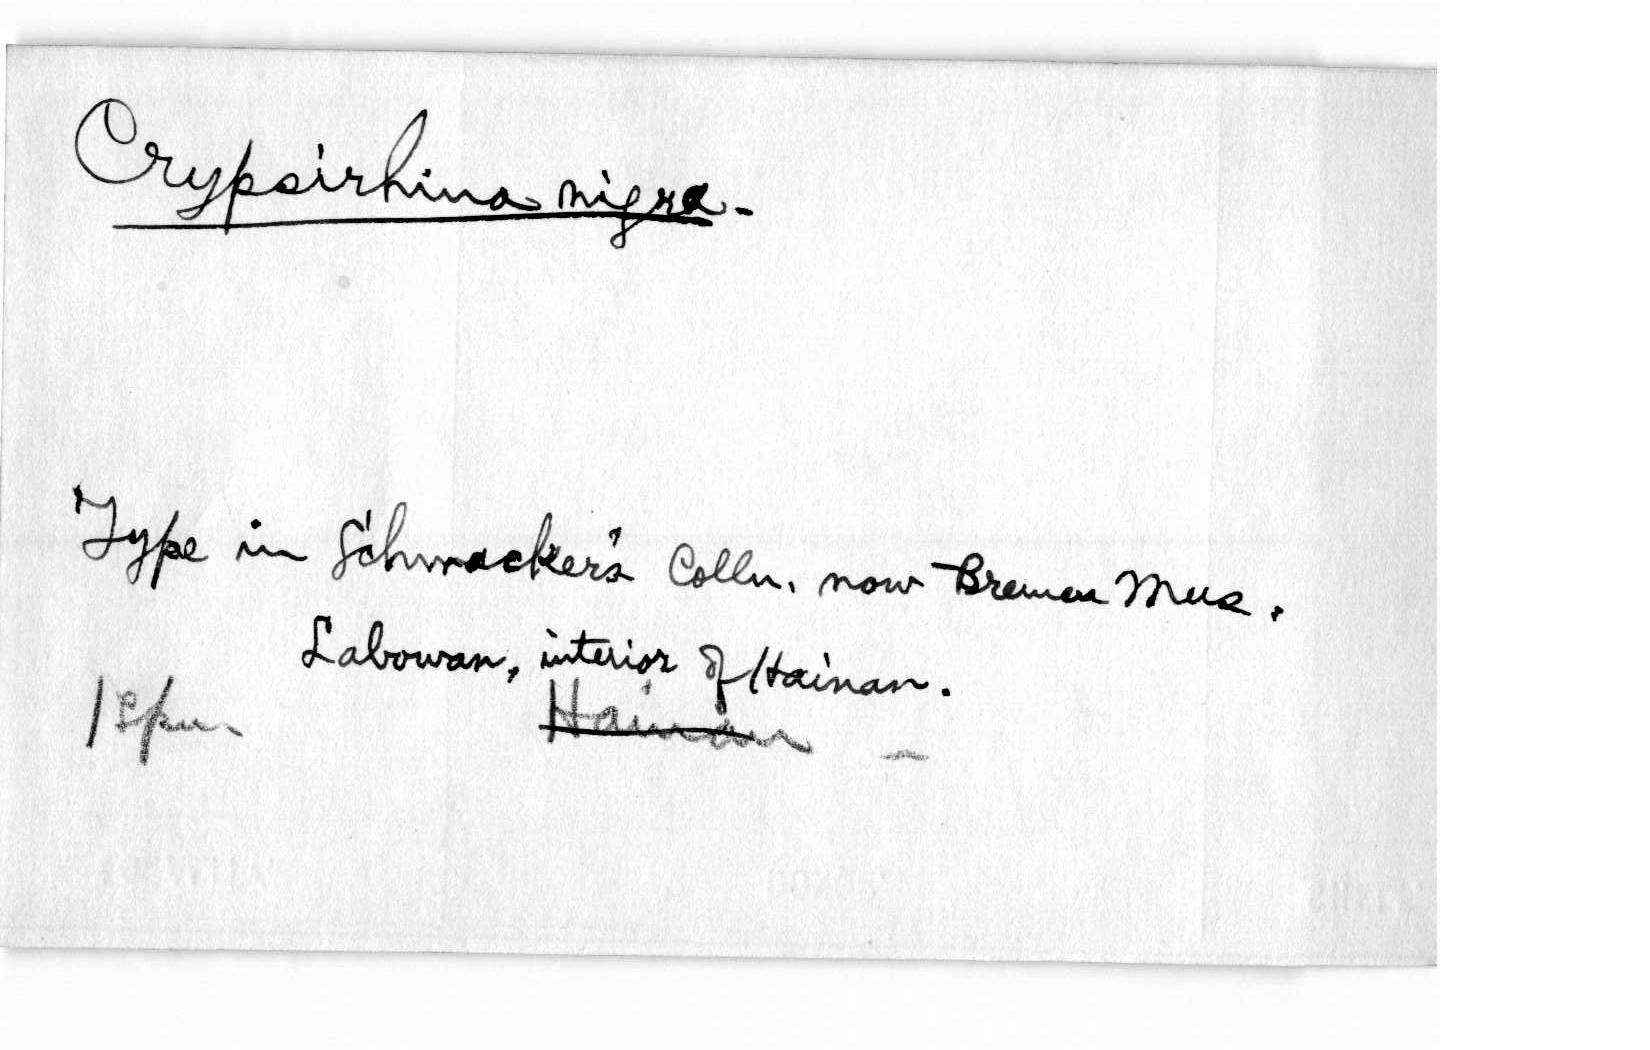 Crypsirhina nigra.
Type in Schmacker's Colln. now Bremen Mus.
Labowan, interior of Hainan.
1 Spn. Hainan –